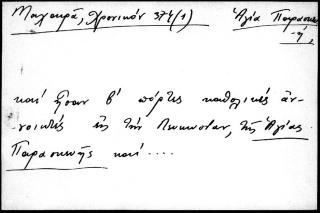 Μαχαιρά, Χρονικόν 374(1) Ἁγία Παρασκευ-
ή,
καί ἦσαν β' πόρτες καθολικές ἀν-
νοικτές εἰς τήν Λευκωσίαν, τῆς Ἁγίας
Παρασκευῆς καί ....